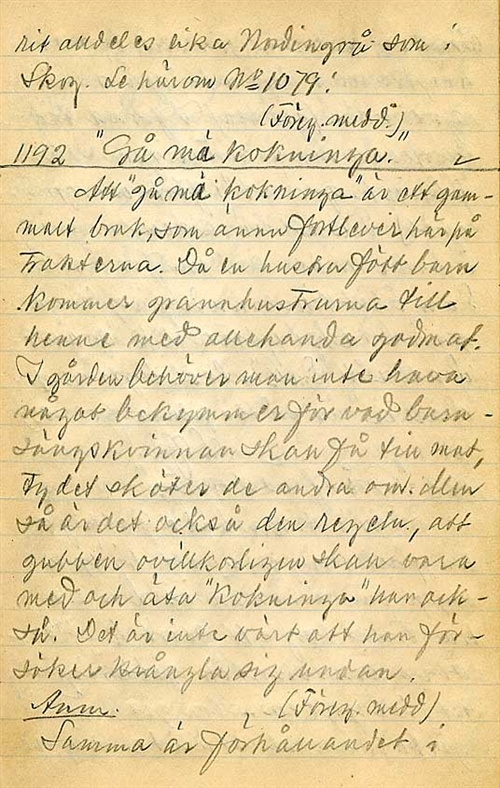 rit alldeles lika Nordingrå som i
Skog. Se härom No 1079!
(Föreg. medd.)
1192 "Gå mä kokninga."
Att "gå mä kokninga" är ett gam-
malt bruk, som ännu fortlever här på
trakterna. Då en hustru fött barn
kommer grannhustrurna till
henne med allehanda godmat.
I gården behöver man inte hava
något bekymmer för vad barn-
sängskvinnan skall få till mat,
ty det sköter de andra om. Men
så är det också den regeln, att
gubben ovillkorligen skall vara
med och äta "kokninga" han ock-
så. Det är inte värt att han för-
söker krångla sig undan.
Anm. (Föreg. medd)
Samma är förhållandet i